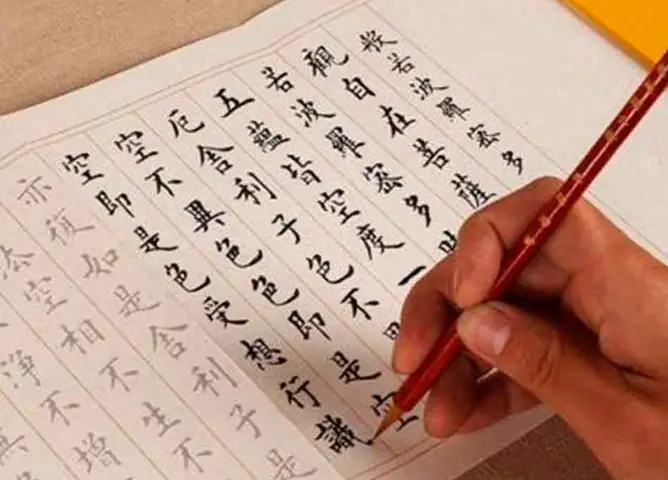 般若波羅蜜多
觀自在菩薩
若波羅蜜多時
五蘊皆空度一
厄舍利子色不
空不異色色即是空
空即是色受想行識
亦復如是舍利子是
法空相不生不
淨不增